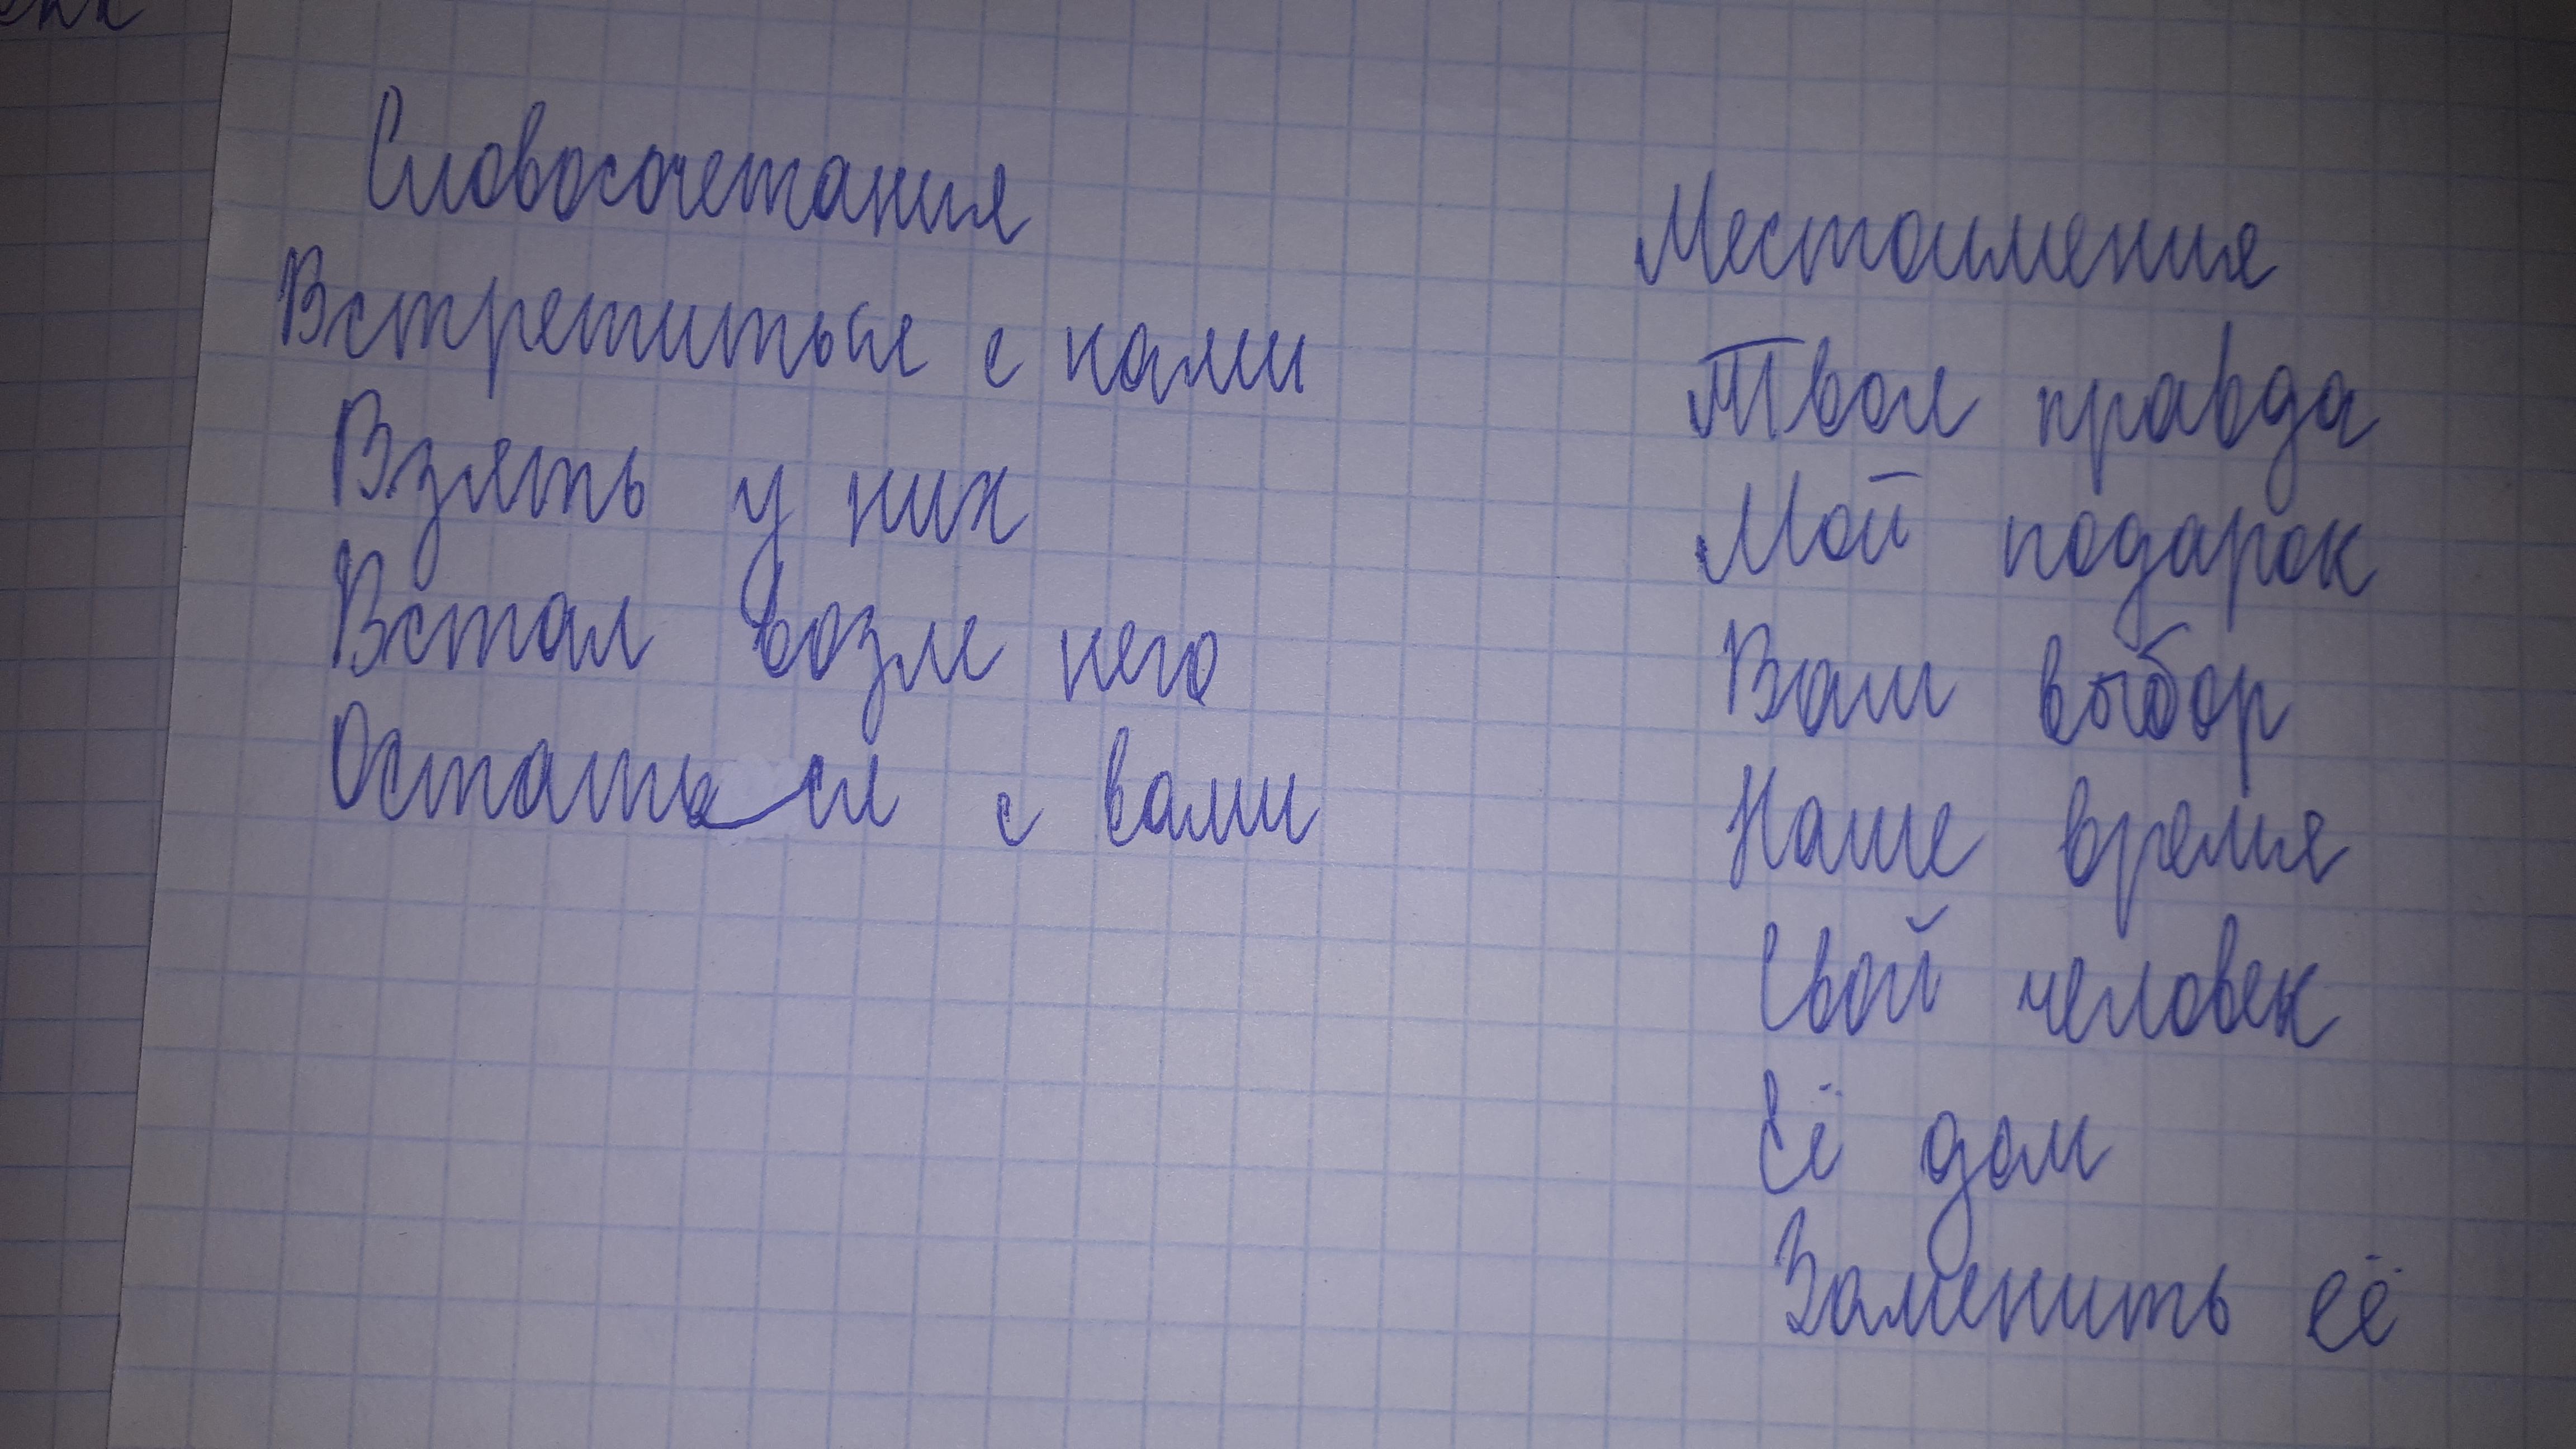 Словосочетания
Встретиться с нами
Взять у них
Встал возле него
Остаться с вами
Местоимения
Твоя правда
Мой подарок
Ваш выбор
Наше время
Свой человек
Её дом
Заменить её